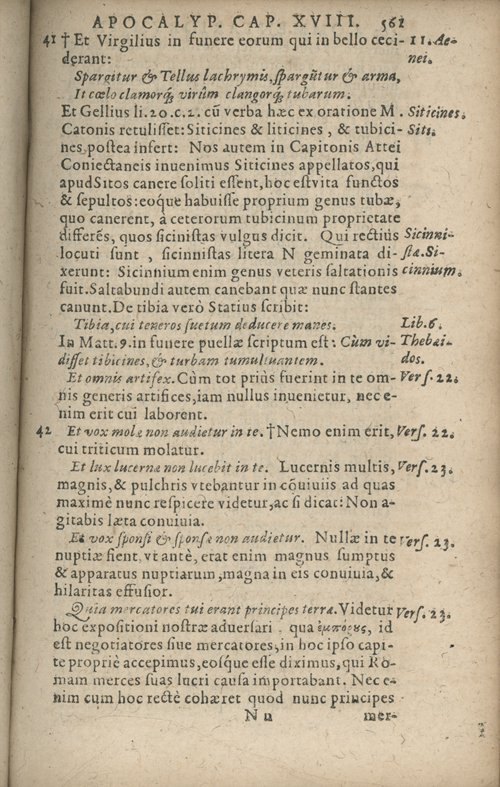 APOCALYP. CAP. XVIII. 561
41 † Et Virgilius in funere eorum qui in bello ceci- 11. Ae-
derant: nei.
Spargitur & Tellus lachrymis, spargũtur & arma,
It cœlo clamorq́; virûm clangorq́; tubarum.
Et Gellius li. 20. c. 2. cũ verba hæc ex oratione M. Siticines.
Catonis retulisset: Siticines & liticines, & tubici- Siti.
nes, postea infert: Nos autem in Capitonis Attei
Coniectaneis inuenimus Siticines appellatos, qui
apud Sitos canere soliti essent, hoc est vita functos
& sepultos: eoque habuisse proprium genus tubæ,
quo canerent, à ceterorum tubicinum proprietate
differẽs, quos sicinistas vulgus dicit. Qui rectius Sicinni-
locuti sunt, sicinnistas litera N geminata di- stæ. Si-
xerunt: Sicinnium enim genus veteris saltationis cinnium.
fuit. Saltabundi autem canebant quæ nunc stantes
canunt. De tibia verò Statius scribit:
Tibia, cui teneros suetum deducere manes. Lib. 6.
In Matt. 9. in funere puellæ scriptum est: Cùm vi- Thebai-
disset tibicines, & turbam tumultuantem. dos.
Et omnis artifex. Cùm tot priùs fuerint in te om- Vers. 22.
nis generis artifices, iam nullus inuenietur, nec e-
nim erit cui laborent.
42 Et vox molæ non audietur in te. † Nemo enim erit, Vers. 22.
cui triticum molatur.
Et lux lucernæ non lucebit in te. Lucernis multis, Vers. 23.
magnis, & pulchris vtebantur in cõuiuiis ad quas
maximè nunc respicere videtur, ac si dicat: Non a-
gitabis læta conuiuia.
Et vox sponsi & sponsæ non audietur. Nullæ in te Vers. 23.
nuptiæ fient, vt antè, erat enim magnus sumptus
& apparatus nuptiarum, magna in eis conuiuia, &
hilaritas effusior.
Quia mercatores tui erant principes terræ. Videtur Vers. 23.
hoc expositioni nostræ aduersari, qua ἐμπόρους, id
est negotiatores siue mercatores, in hoc ipso capi-
te propriè accepimus, eosque esse diximus, qui Ro-
mam merces suas lucri causa importabant. Nec e-
nim cum hoc rectè cohæret quod nunc principes
N n mer-